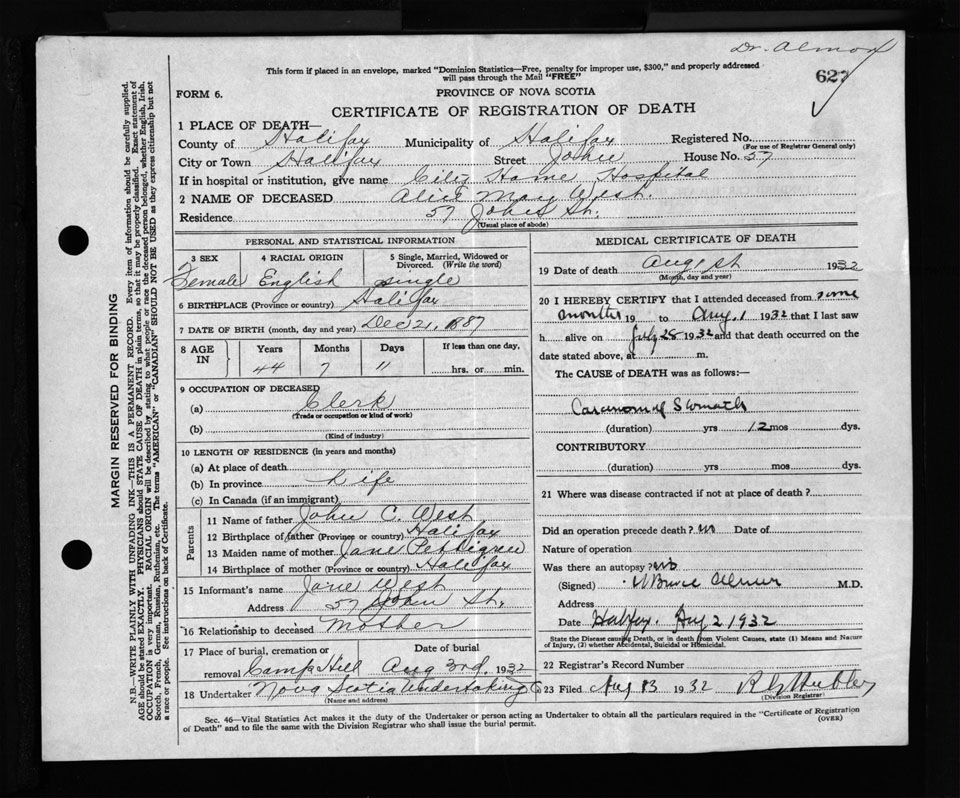 Dr. Almon
This form if placed in an envelope, marked "Dominion Statistics—Free, penalty for improper use, $300," and properly addressed
will pass through the Mail "FREE"
627
FORM 6.
PROVINCE OF NOVA SCOTIA
CERTIFICATE OF REGISTRATION OF DEATH
1 PLACE OF DEATH—
County of Halifax Municipality of Halifax Registered No.
(For use of Registrar General only)
City or Town Halifax Street John House No. 57
If in hospital or institution, give name City Home Hospital
2 NAME OF DECEASED Alice May West.
Residence 57 John St.
(Usual place of abode)
PERSONAL AND STATISTICAL INFORMATION
3 SEX 4 RACIAL ORIGIN 5 Single, Married, Widowed or
Divorced. (Write the word)
Female English single
6 BIRTHPLACE (Province or country) Halifax
7 DATE OF BIRTH (month, day and year) Dec 21, 1887
8 AGE IN Years Months Days If less than one day,
44 7 11 hrs. or min.
9 OCCUPATION OF DECEASED
(a) Clerk
(Trade or occupation or kind of work)
(b)
(Kind of industry)
10 LENGTH OF RESIDENCE (in years and months)
(a) At place of death
(b) In province Life
(c) In Canada (if an immigrant)
Parents
11 Name of father John C. West
12 Birthplace of father (Province or country) Halifax
13 Maiden name of mother Jane Pettigrew
14 Birthplace of mother (Province or country) Halifax
15 Informant's name Jane West
Address 57 John St.
16 Relationship to deceased Mother
17 Place of burial, cremation or Date of burial
removal Camp Hill Aug 3rd. 1932
18 Undertaker Nova Scotia Undertaking Co
(Name and address)
MEDICAL CERTIFICATE OF DEATH
19 Date of death Aug 1st 1932
(Month, day and year)
20 I HEREBY CERTIFY that I attended deceased from some
months 19 to Aug. 1 1932 that I last saw
h alive on July 28 1932 and that death occurred on the
date stated above, at m.
The CAUSE of DEATH was as follows:—
Carcinoma of Stomach
(duration) yrs 12 mos dys.
CONTRIBUTORY
(duration) yrs mos dys.
21 Where was disease contracted if not at place of death?
Did an operation precede death? no Date of
Nature of operation
Was there an autopsy? no
(Signed) W Bruce Almon M.D.
Address
Date Halifax Aug 2 1932
State the Disease causing Death, or in death from Violent Causes, state (1) Means and Nature
of Injury, (2) whether Accidental, Suicidal or Homicidal.
22 Registrar's Record Number
23 Filed Aug 3 1932
(Division Registrar)
Sec. 46—Vital Statistics Act makes it the duty of the Undertaker or person acting as Undertaker to obtain all the particulars required in the "Certificate of Registration
of Death" and to file the same with the Division Registrar who shall issue the burial permit. (OVER)
MARGIN RESERVED FOR BINDING
N.B.—WRITE PLAINLY WITH UNFADING INK—THIS IS A PERMANENT RECORD. Every item of information should be carefully supplied.
AGE should be stated EXACTLY. PHYSICIANS should STATE CAUSE OF DEATH in plain terms, so that it may be properly classified. Exact statement of
OCCUPATION is very important. RACIAL ORIGIN will be described by stating to what people or race the deceased person belonged, whether English, Irish,
Scotch, French, German, Russian, Ruthenian, etc. The terms "AMERICAN" or "CANADIAN" SHOULD NOT BE USED as they express citizenship but not
a race or people. See instructions on back of Certificate.